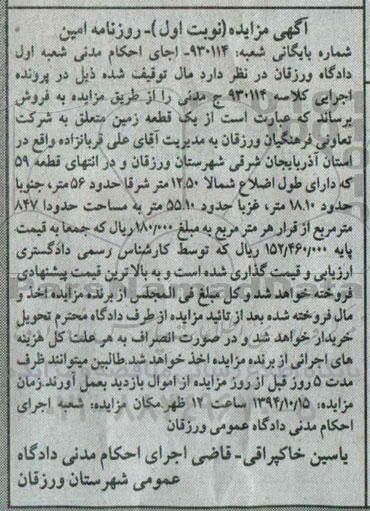 آگهی مزایده (نوبت اول)- روزنامه امین
شماره بایگانی شعبه: ۹۳۰۱۱۴- اجای احکام مدنی شعبه اول
دادگاه ورزقان در نظر دارد مال توقیف شده ذیل در پرونده
اجرایی کلاسه ۹۳۰۱۱۴ ج مدنی را از طریق مزایده به فروش
برساند که عبارت است از یک قطعه زمین متعلق به شرکت
تعاونی فرهنگیان ورزقان به مدیریت آقای علی قربانزاده واقع در
استان آذربایجان شرقی شهرستان ورزقان و در انتهای قطعه ۵۹
که دارای طول اضلاع شمالا ۱۲.۵۰ متر شرقا حدود ۵۶ متر، جنوبا
حدود ۱۸.۱۰ متر، غربا حدود ۵۵.۱۰ متر به مساحت حدودا ۸۴۷
مترمربع از قرار هر متر مربع به مبلغ ۱۸۰/۰۰۰ ریال که جمعا به قیمت
پایه ۱۵۲/۴۶۰/۰۰۰ ریال که توسط کارشناس رسمی دادگستری
ارزیابی و قیمت گذاری شده است و به بالاترین قیمت پیشنهادی
فروخته خواهد شد و کل مبلغ فی المجلس از برنده مزایده اخذ و
مال فروخته شده بعد از تائید مزایده از طرف دادگاه محترم تحویل
خریدار خواهد شد و در صورت انصراف به هر علت کل هزینه
های اجرائی از برنده مزایده اخذ خواهد شد.طالبین میتوانند ظرف
مدت ۵ روز قبل از روز مزایده از اموال بازدید بعمل آورند.زمان
مزایده: ۱۳۹۴/۱۰/۱۵ ساعت ۱۲ ظهر.مکان مزایده: شعبه اجرای
احکام مدنی دادگاه عمومی ورزقان
یاسین خاکپراقی- قاضی اجرای احکام مدنی دادگاه
عمومی شهرستان ورزقان